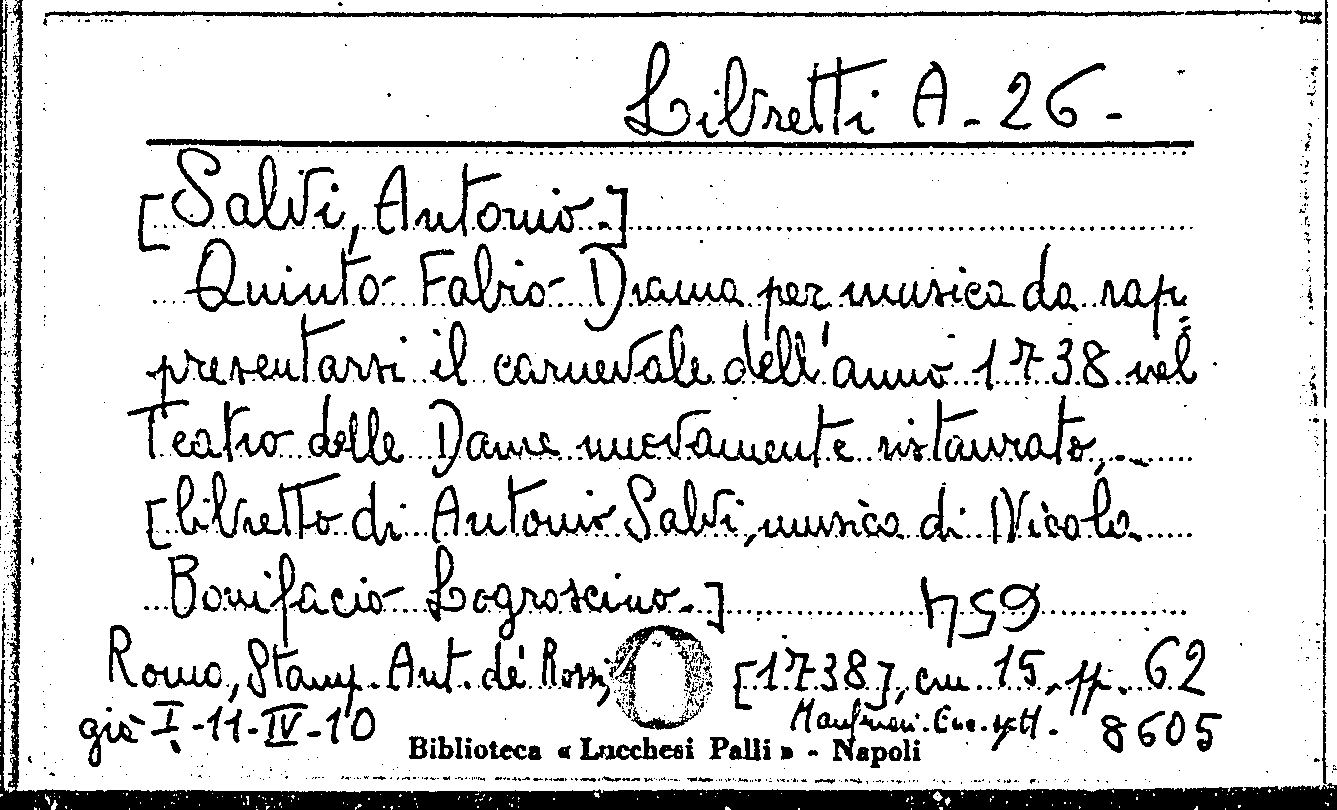 Libretti A-26-
[Salvi, Antonio.]
Quinto Fabio Drama per musica da rap=
presentarsi il carnevale dell'anno 1738 nel
Teatro delle Dame nuovamente ristaurato,...
[libretto di Antonio Salvi, musica di Nicola
Bonifacio Logroscino.]
654
Roma, Stamp. Ant. de' Rossi, [1738], cm. 15, pp. 62
già I.-11-IV-10
8605
Biblioteca « Lucchesi Palli » - Napoli